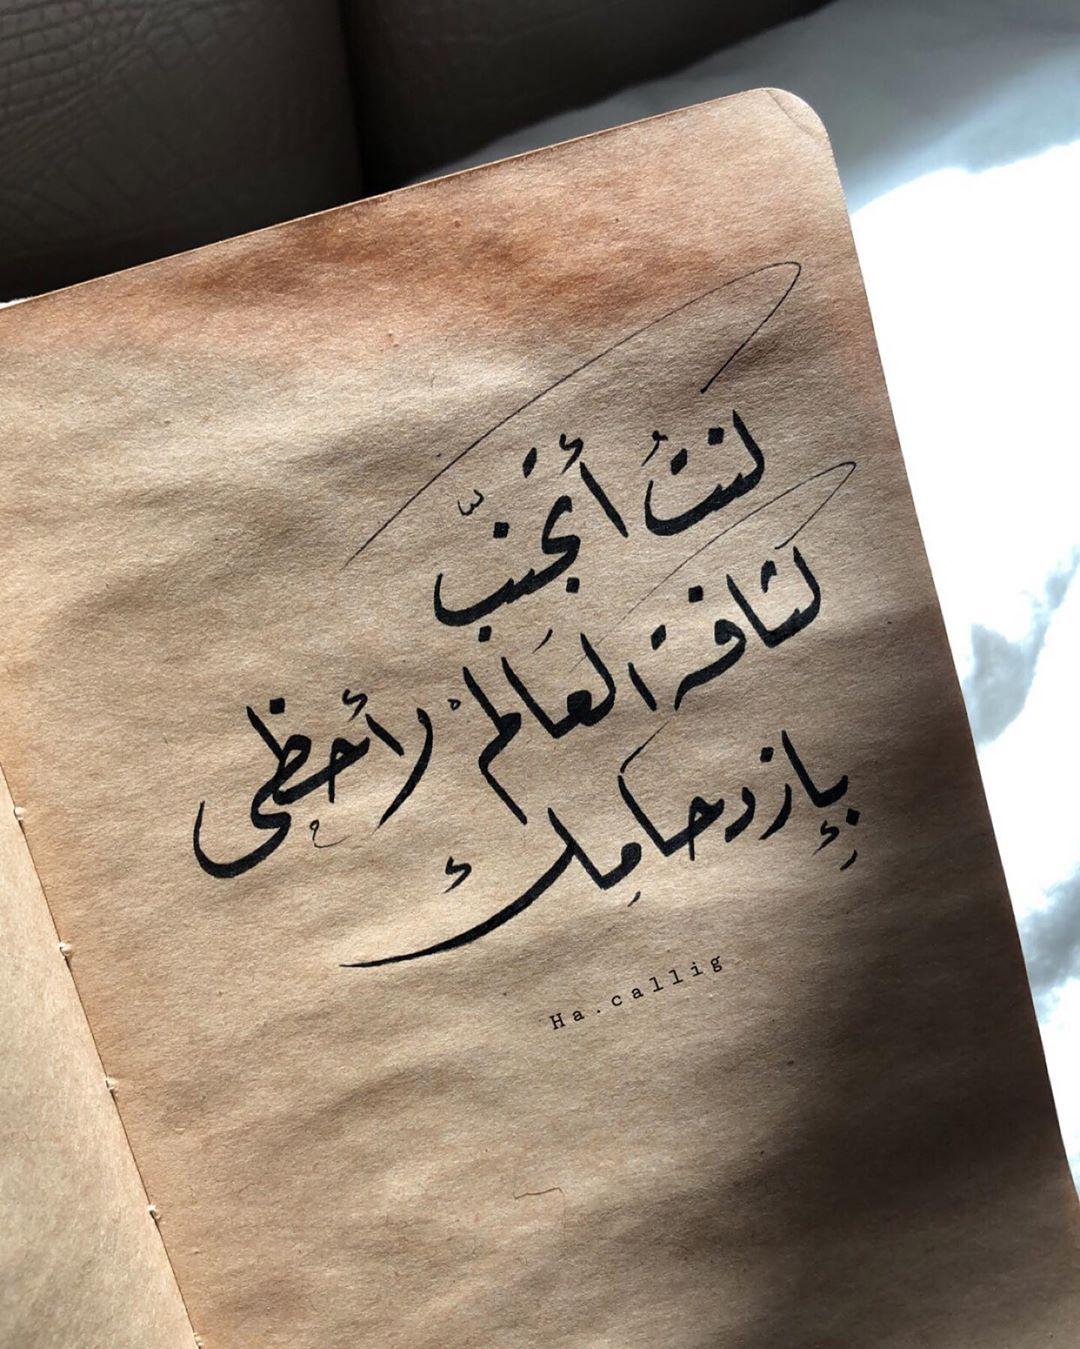 كنتُ أتجنّب
كثافة العَالمْ لأحظى
بِإزدحامِك
Ha.callig